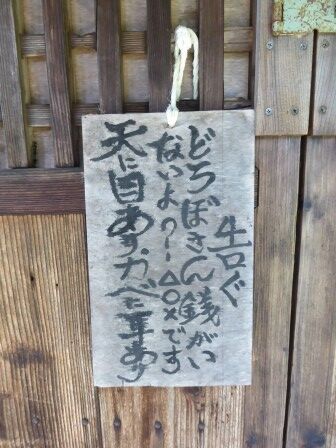 告ぐ
どろぼさん銭がい
ないよ?ー△○×です
天に目あり.カベに耳あり